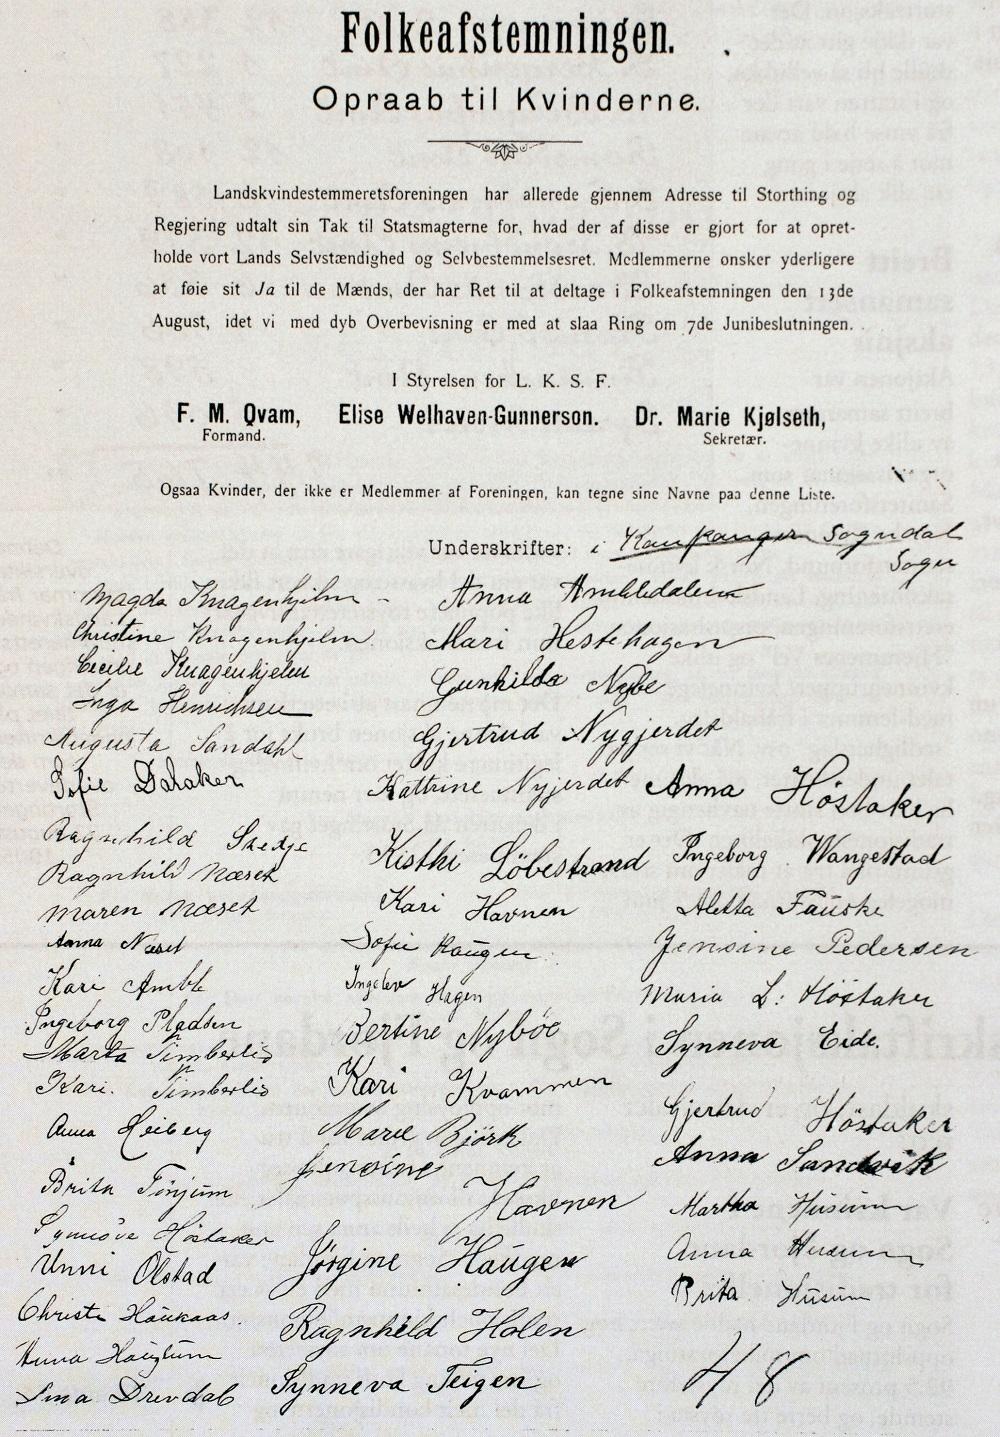 Folkeafstemningen.
Opraab til Kvinderne.
Landskvindestemmeretsforeningen har allerede gjennem Adresse til Storthing og
Regjering udtalt sin Tak til Statsmagterne for, hvad der af disse er gjort for at opret-
holde vort Lands Selvstændighed og Selvbestemmelsesret. Medlemmerne ønsker yderligere
at føie sit Ja til de Mænds, der har Ret til at deltage i Folkeafstemningen den 13de
August, idet vi med dyb Overbevisning er med at slaa Ring om 7de Junibeslutningen.
I Styrelsen for L. K. S. F.
F. M. Qvam, Elise Welhaven-Gunnerson. Dr. Marie Kjølseth,
Formand. Sekretær.
Ogsaa Kvinder, der ikke er Medlemmer af Foreningen, kan tegne sine Navne paa denne Liste.
Underskrifter: i Kaupanger Sogndal
Sogn
Magda Knagenhjelm
Christine Knagenhjelm.
Cecilie Knagenhjelm
Inga Henrichsen
Augusta Sandahl
Sofie Dalaker
Ragnhild Skedje
Ragnhild Næset
Maren Næset
Anna Næset
Kari Amble
Ingeborg Pladsen
Marta Timberlid
Kari. Timberlid
Anna Heiberg
Brita Tønjum
Synnøve Höstaker
Unni Olstad
Christi Haukaas.
Anna Haugum
Sina Drevdal
Anna Ambledalen
Mari Hestehagen
Gunhilda Nybø
Gjertrud Nygjerdet
Kattrine Nyjerdet
Kisthi Löbestrand
Kari Havnen
Sofie Haugen
Ingelev Hagen
Bertine Nyböe
Kari Kvammen
Marie Björk
Jensine
Havnen
Jörgine Haugen
Ragnhild Holen
Synneva Teigen
Anna Höstaker
Ingeborg Wangestad
Aletta Fauske
Jensine Pedersen
Maria L: Höstaker
Synneva Eide.
Gjertrud Höstaker
Anna Sandvik
Martha Husum
Anna Husum
Brita Husum
48